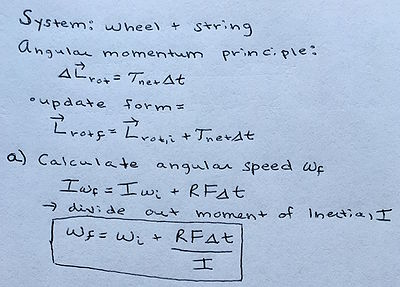 System: wheel + string
Angular momentum principle:
ΔL⃗rot = Tnet Δt
• update form =
L⃗rot,f = L⃗rot,i + Tnet Δt
a) Calculate angular speed ωf
Iωf = Iωi + RFΔt
→ divide out moment of Inertial, I
ωf = ωi + RFΔt / I